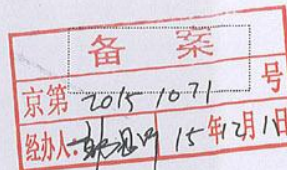 备案
京第 20151071 号
经办人: 15年12月1日